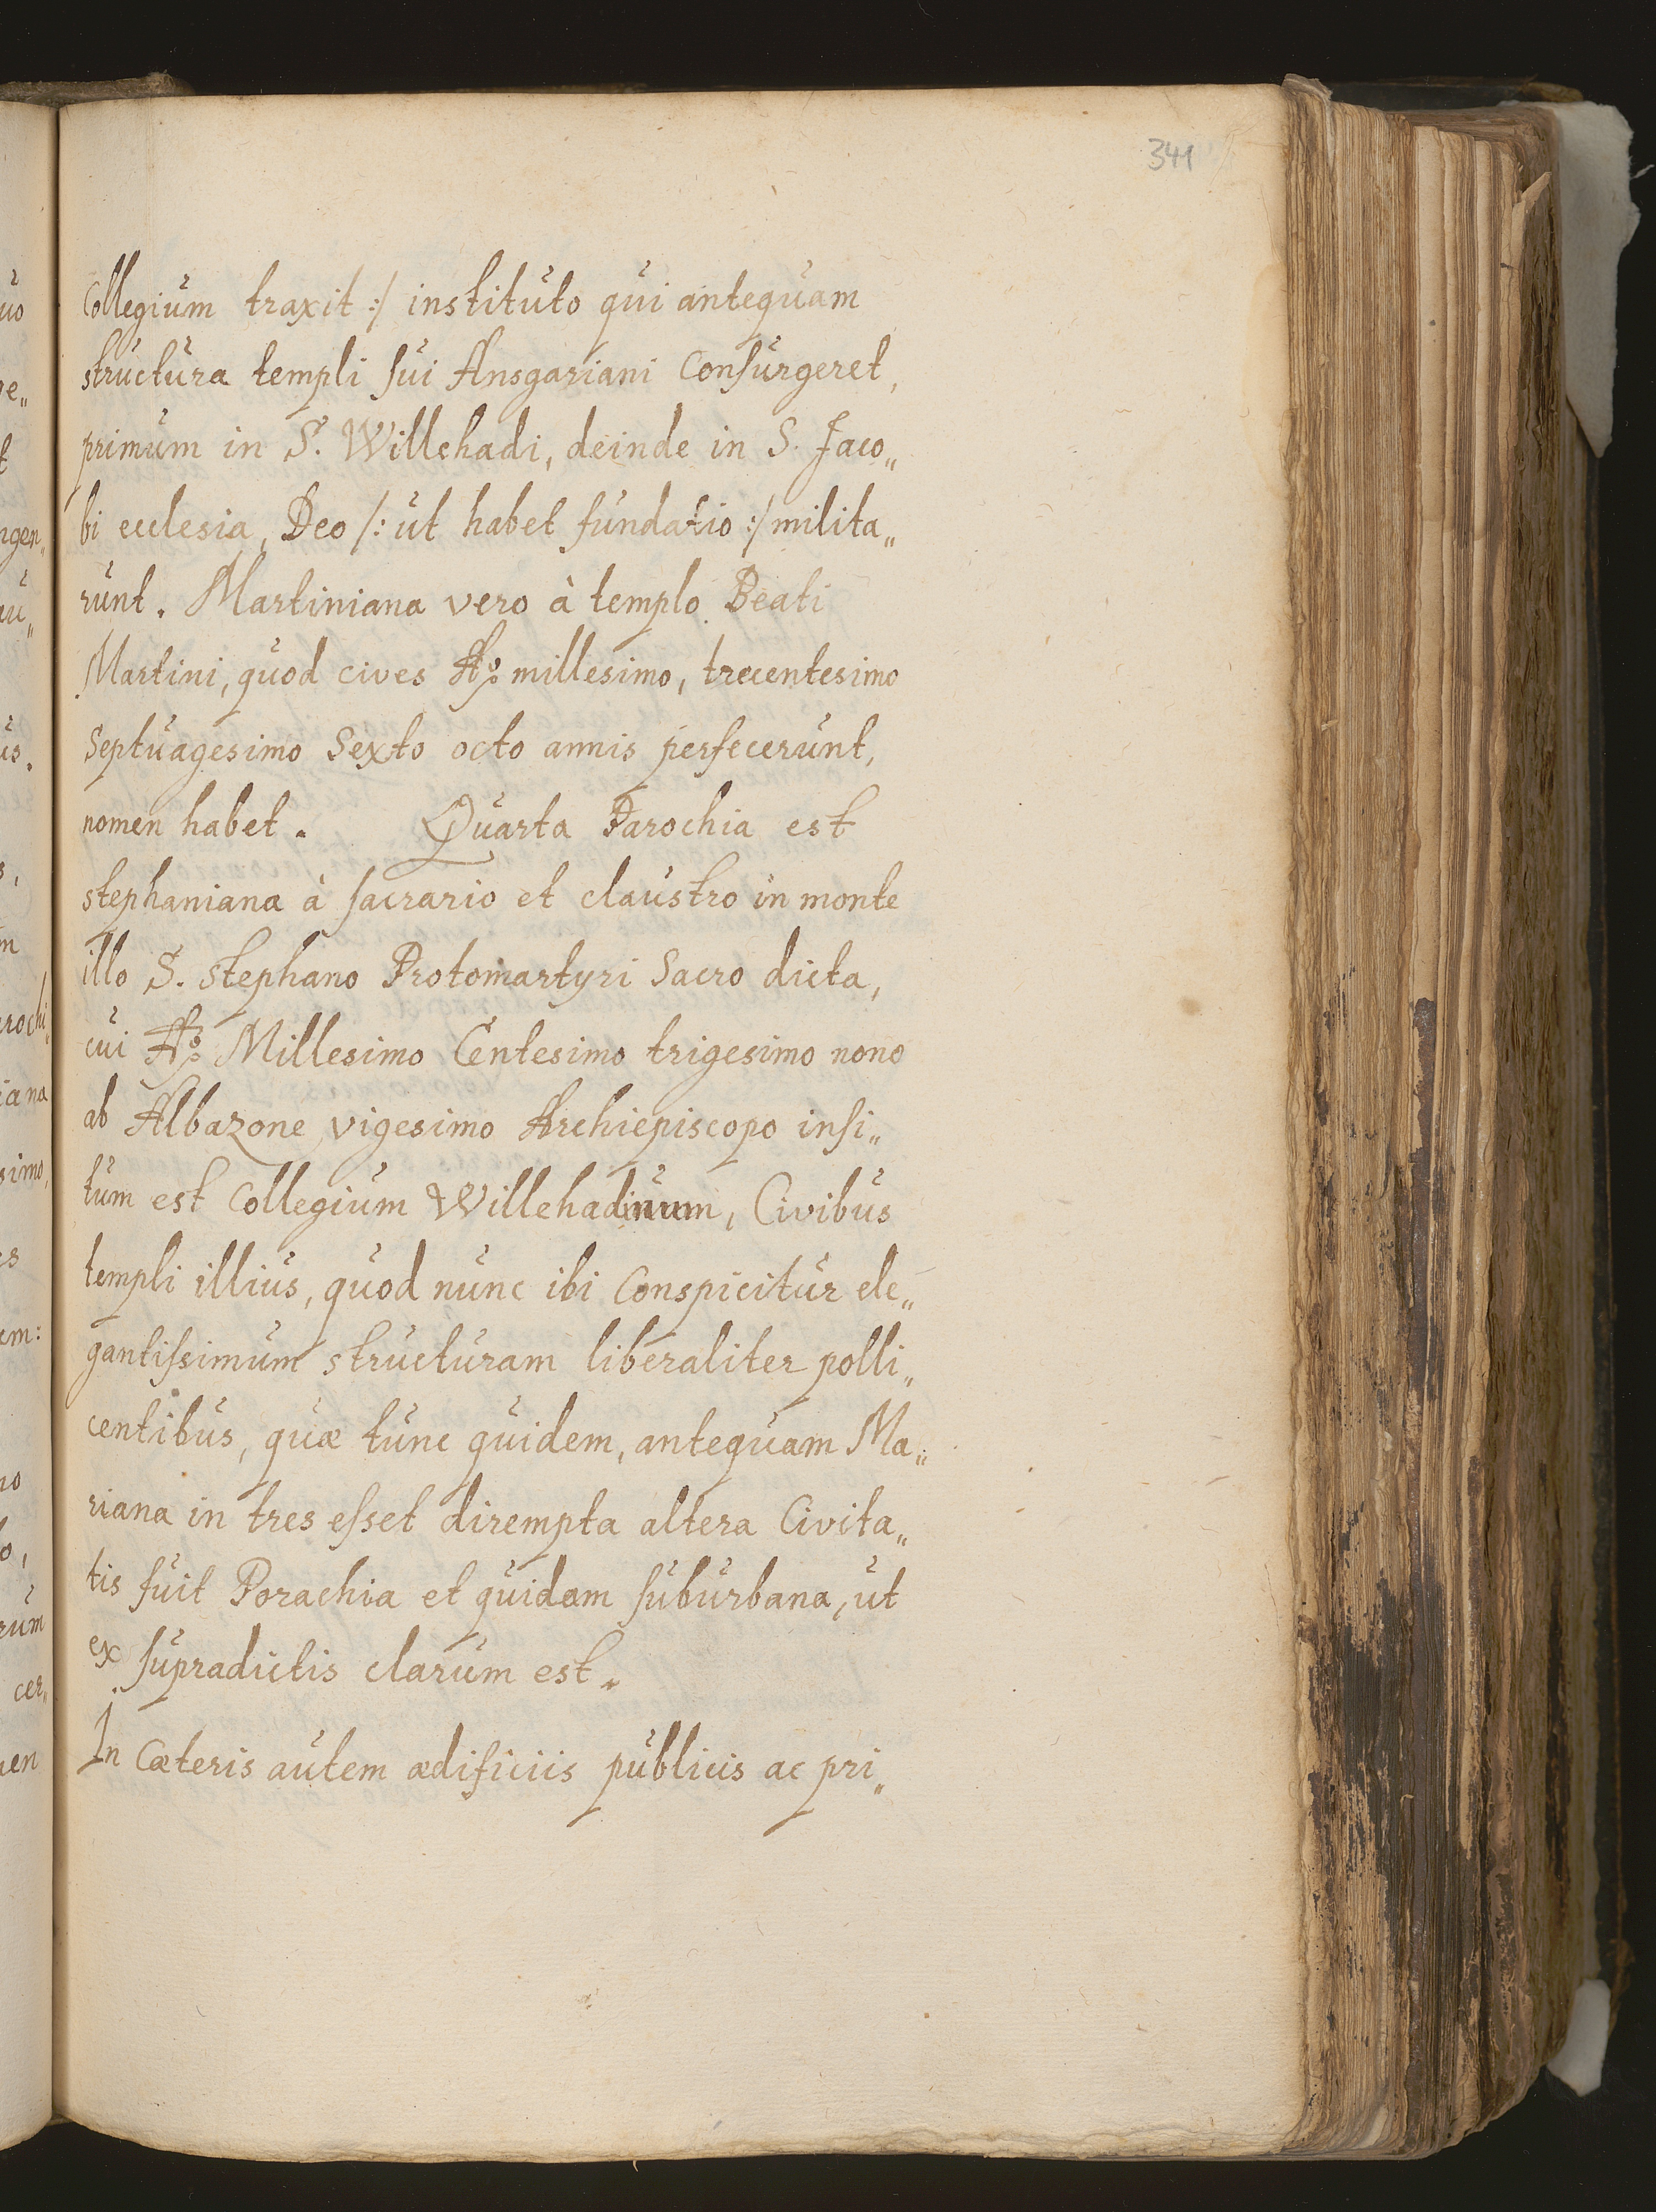 341
Collegium traxit :/ instituto qui antequam
structura templi sui Ansgariani Consurgeret,
primum in S. Willehadi, deinde in S. Jaco„
bi ecclesia, Deo /: ut habet fundatio :/ milita„
runt. Martiniana vero à templo Beati
Martini, quod cives Aọ millesimo, trecentesimo
Septuagesimo Sexto octo annis perfecerunt,
nomen habet. Quarta Parochia est
stephaniana à sacrario et claustro in monte
illo S. stephano Protomartyri Sacro dicta,
cui Aọ Millesimo Centesimo trigesimo nono
ab Albazone vigesimo Archiepiscopo insi„
tum est Collegium Willehadinum, Civibus
templi illius, quod nunc ibi Conspicitur ele„
gantissimum structuram liberaliter polli„
centibus, quæ tunc quidem, antequam Ma„
riana in tres esset dirempta altera Civita„
tis fuit Porachia et quidam suburbana, ut
ex supradictis clarum est.
In Cæteris autem ædificiis publicis ac pri„